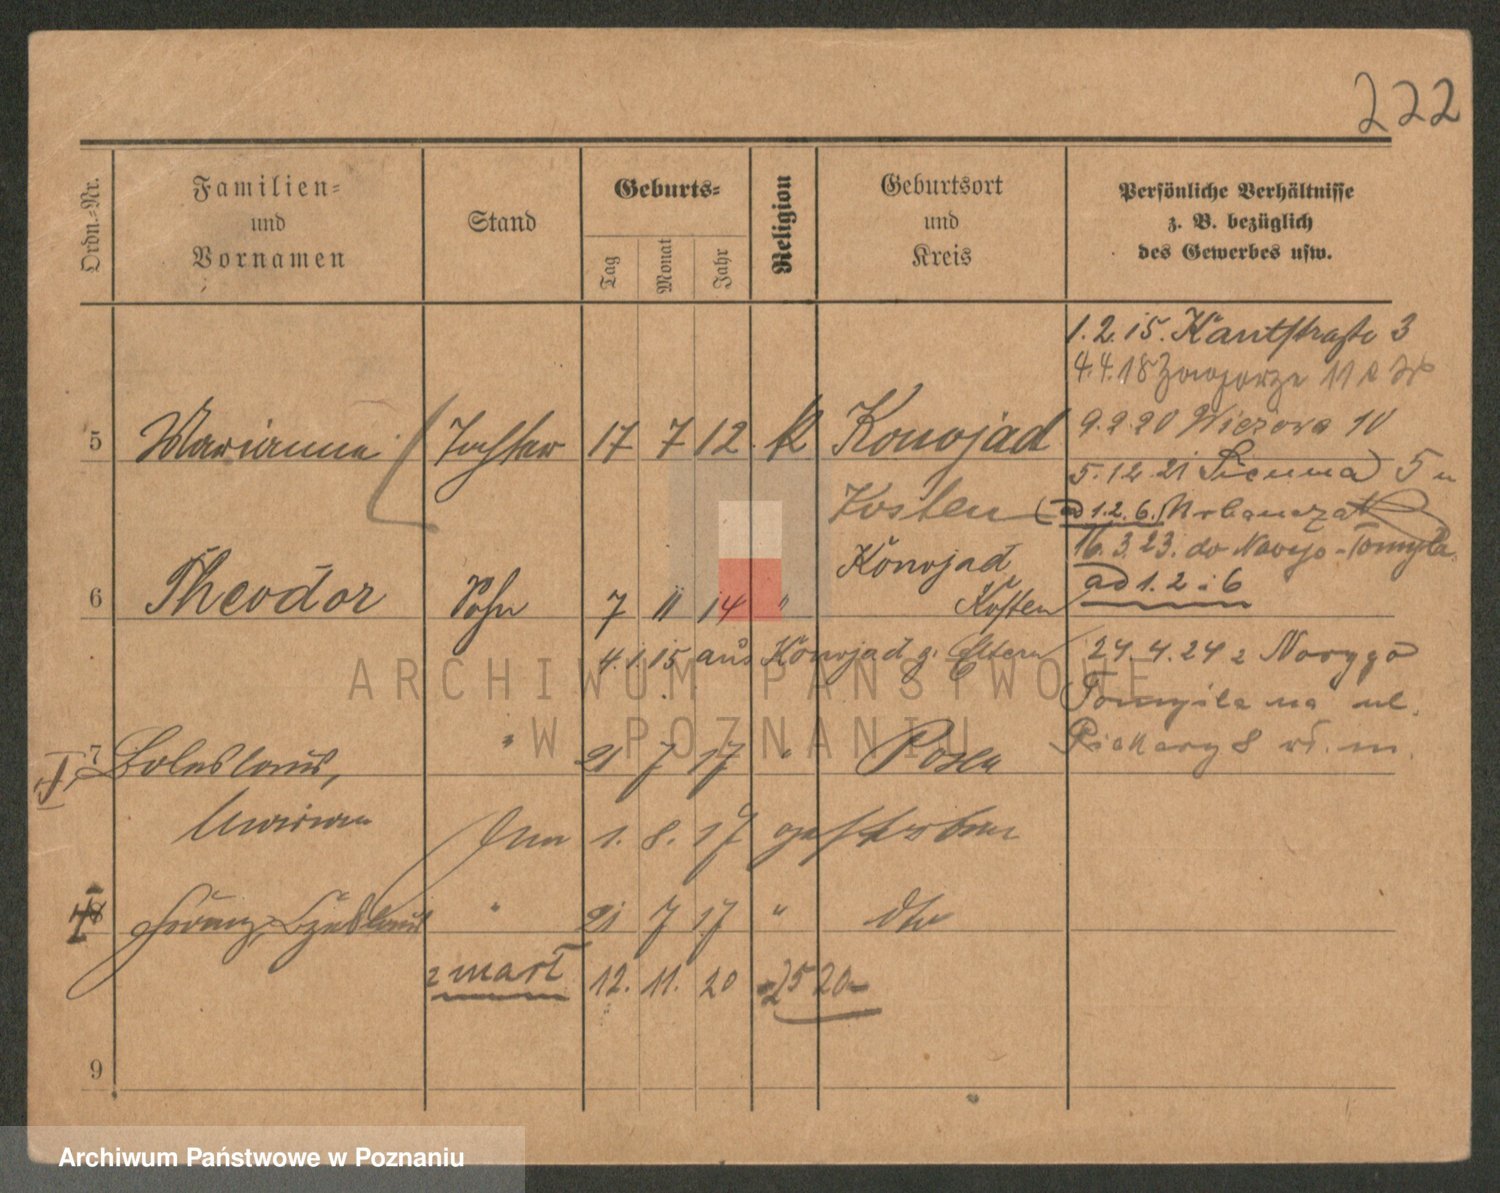 222
Ordn.-Nr.
Familien-
und
Vornamen
Stand
Geburts-
Tag
Monat
Jahr
Religion
Geburtsort
und
Kreis
Persönliche Verhältnisse
z. B. bezüglich
des Gewerbes usw.
1.2.15. Kantstraße 3
4.4.18 Zawgorze 11
5 Marianna Tochter 17 7 12. k Konojad
9.2.20 Wieżowa 10
5.12.21 5
Kosten
ad 1.2.6.
16.3.23. do Nowego-Tomyśla
Konojad
ad 1.2 i 6
6 Theodor Sohn 7 11 14 " Kosten
4.1.15 aus Konojad z. Eltern
24.4.24 z Nowygo
Tomyśla na ul.
Piekary 8
7 Boleslaus, " 21 7 17 " Posen
Marian
Am 1. 8. 17 gestorben
8 Franz, Czeslaus " 21 7 17 " dto
z marł 12. 11. 20 2520
9
ARCHIWUM PAŃSTWOWE
W POZNANIU
Archiwum Państwowe w Poznaniu